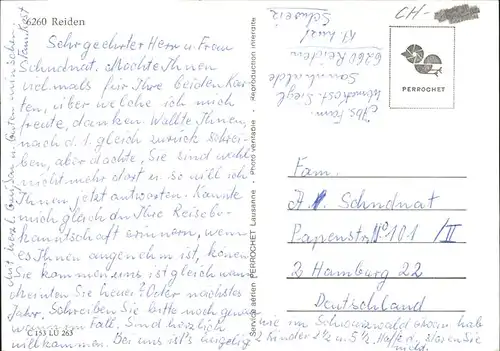 6260 Reiden
Sehr geehrter Herr u. Frau
Schndnat. Möchte Ihnen
vielmals für Ihre beiden Kar-
ten, über welche ich mich
freute, danken. Wollte Ihnen,
nach d. 1. gleich zurück schrei-
ben, aber dachte, Sie sind wohl
nicht mehr dort u. so will ich
Ihnen jetzt antworten. Kannte
mich gleich an Ihre Reisebe-
kanntschaft erinnern, wenn
es Ihnen angenehm ist, können
Sie kommen uns ist gleich wann
Sie heuer? Oder nächstes
Jahr, Schreiben Sie bitte noch genau
wann im Fall. Sind herzlich
willkommen. Bei uns ist's
C 153 LU 265
Service aérien PERROCHET Lausanne · Photo véritable · Reproduction interdite
Abs. Fam.
Siegl
6260 Reiden
Kt. Luz
Schweiz
CH-
PERROCHET
Fam.
A. Schndnat
Papenstr. No 101 / II
2 Hamburg 22
Deutschland
2 Kinder 2½ u. 5½.